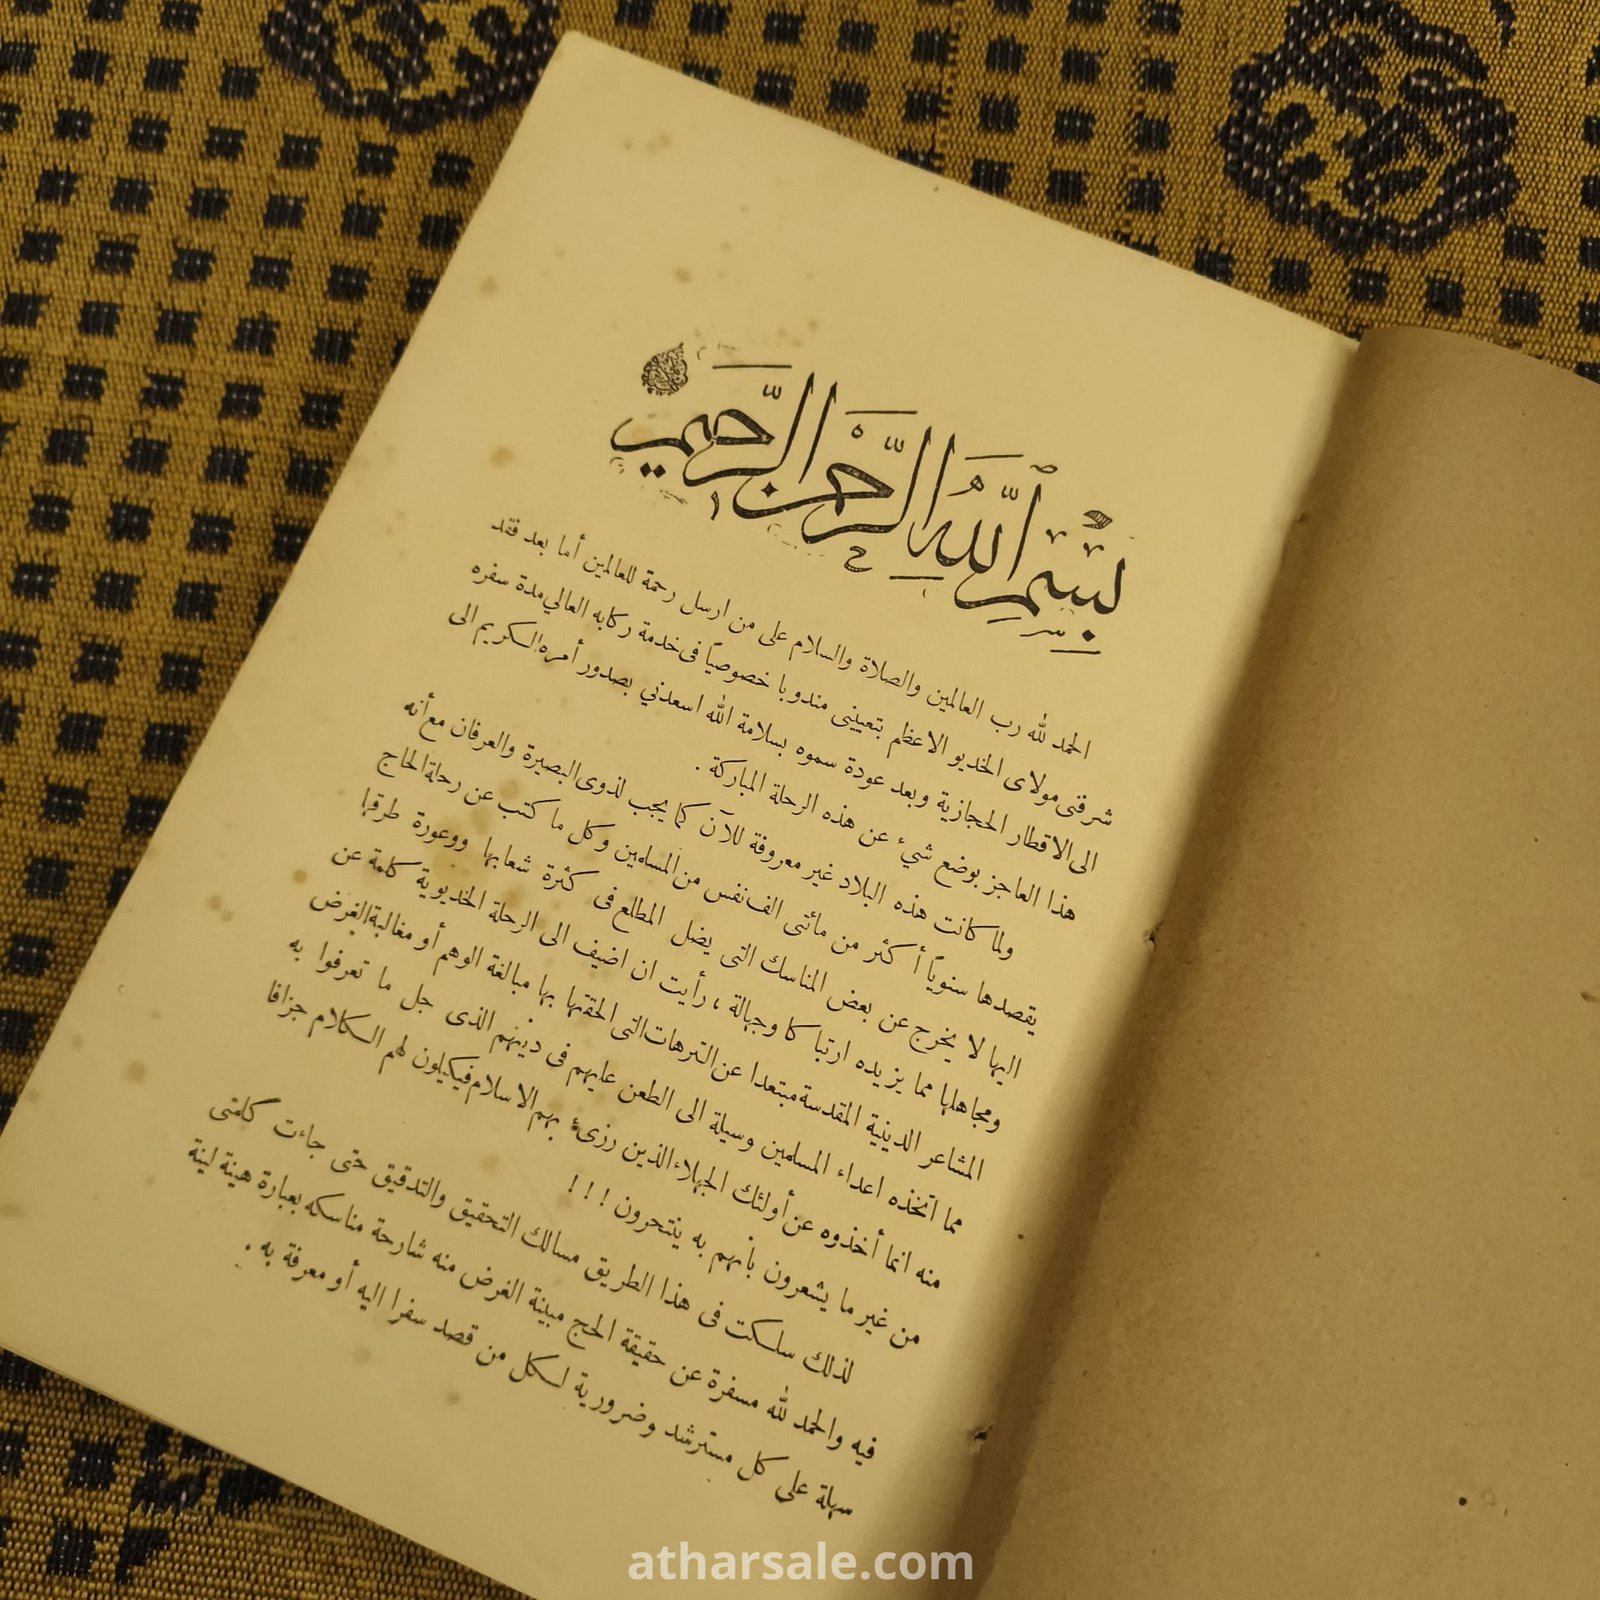 بِسْمِ اللَّهِ الرَّحْمٰنِ الرَّحِيمِ
الحمد لله رب العالمين والصلاة والسلام على من ارسل رحمة للعالمين أما بعد فقد
شرفنى مولاى الخديو الاعظم بتعيينى مندوبا خصوصياً فى خدمة ركابه العالي مدة سفره
الى الاقطار الحجازية وبعد عودة سموه بسلامة الله اسعدني بصدور أمره الكريم الى
هذا العاجز بوضع شيء عن هذه الرحلة المباركة .
ولما كانت هذه البلاد غير معروفة للآن كما يجب لذوى البصيرة والعرفان مع أنه
يقصدها سنوياً أكثر من مائتى الف نفس من المسلمين وكل ما كتب عن رحلة الحاج
اليها لا يخرج عن بعض المناسك التى يضل المطلع فى كثرة شعابها ووعورة طرقها
ومجاهلها مما يزيده ارتباكا وجهالة ، رأيت ان اضيف الى الرحلة الخديوية كلمة عن
المشاعر الدينية المقدسة مبتعدا عن الترهات التى الحقتها بها مبالغة الوهم أو مغالبة الغرض
مما اتخذه اعداء المسلمين وسيلة الى الطعن عليهم فى دينهم الذى جل ما تعرفوا به
منه انما أخذوه عن أولئك الجهلاء الذين رزىء بهم الاسلام فيكيلون لهم الكلام جزافا
من غير ما يشعرون بأنهم به ينتحرون ! ! !
لذلك سلكت فى هذا الطريق مسالك التحقيق والتدقيق حتى جاءت كلمتى
فيه والحمد لله مسفرة عن حقيقة الحج مبينة الغرض منه شارحة مناسكه بعبارة هينة لينة
سهلة على كل مسترشد وضرورية لكل من قصد سفرا اليه أو معرفة به .
atharsale.com